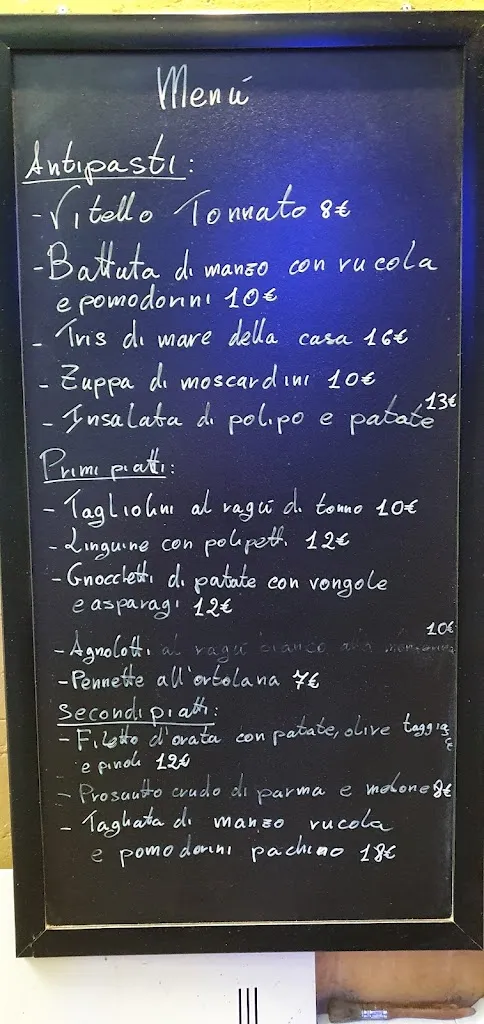 Menú
Antipasti:
- Vitello Tonnato 8€
- Battuta di manzo con rucola
e pomodorini 10€
- Tris di mare della casa 16€
- Zuppa di moscardini 10€
- Insalata di polipo e patate 13€
Primi piatti:
- Tagliolini al ragú di tonno 10€
- Linguine con polipetti 12€
- Gnocchetti di patate con vongole
e asparagi 12€
- Agnolotti al ragú bianco alla 10€
- Pennette all'ortolana 7€
Secondi piatti:
- Filetto d'orata con patate, olive taggia
e pinoli 12€
- Prosciutto crudo di parma e melone 8€
- Tagliata di manzo rucola
e pomodorini pachino 18€